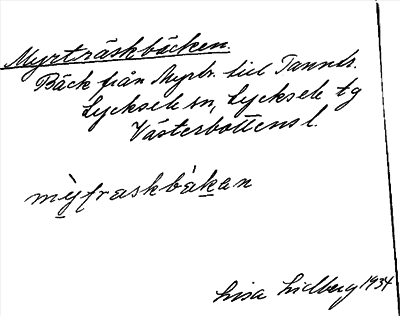 Myrträskbäcken.
Bäck från Myrtr. till Tanntr.
Lycksele sn, Lycksele tg
Västerbottens l.
mỳfraskbàkan
Lisa Lidberg 1934